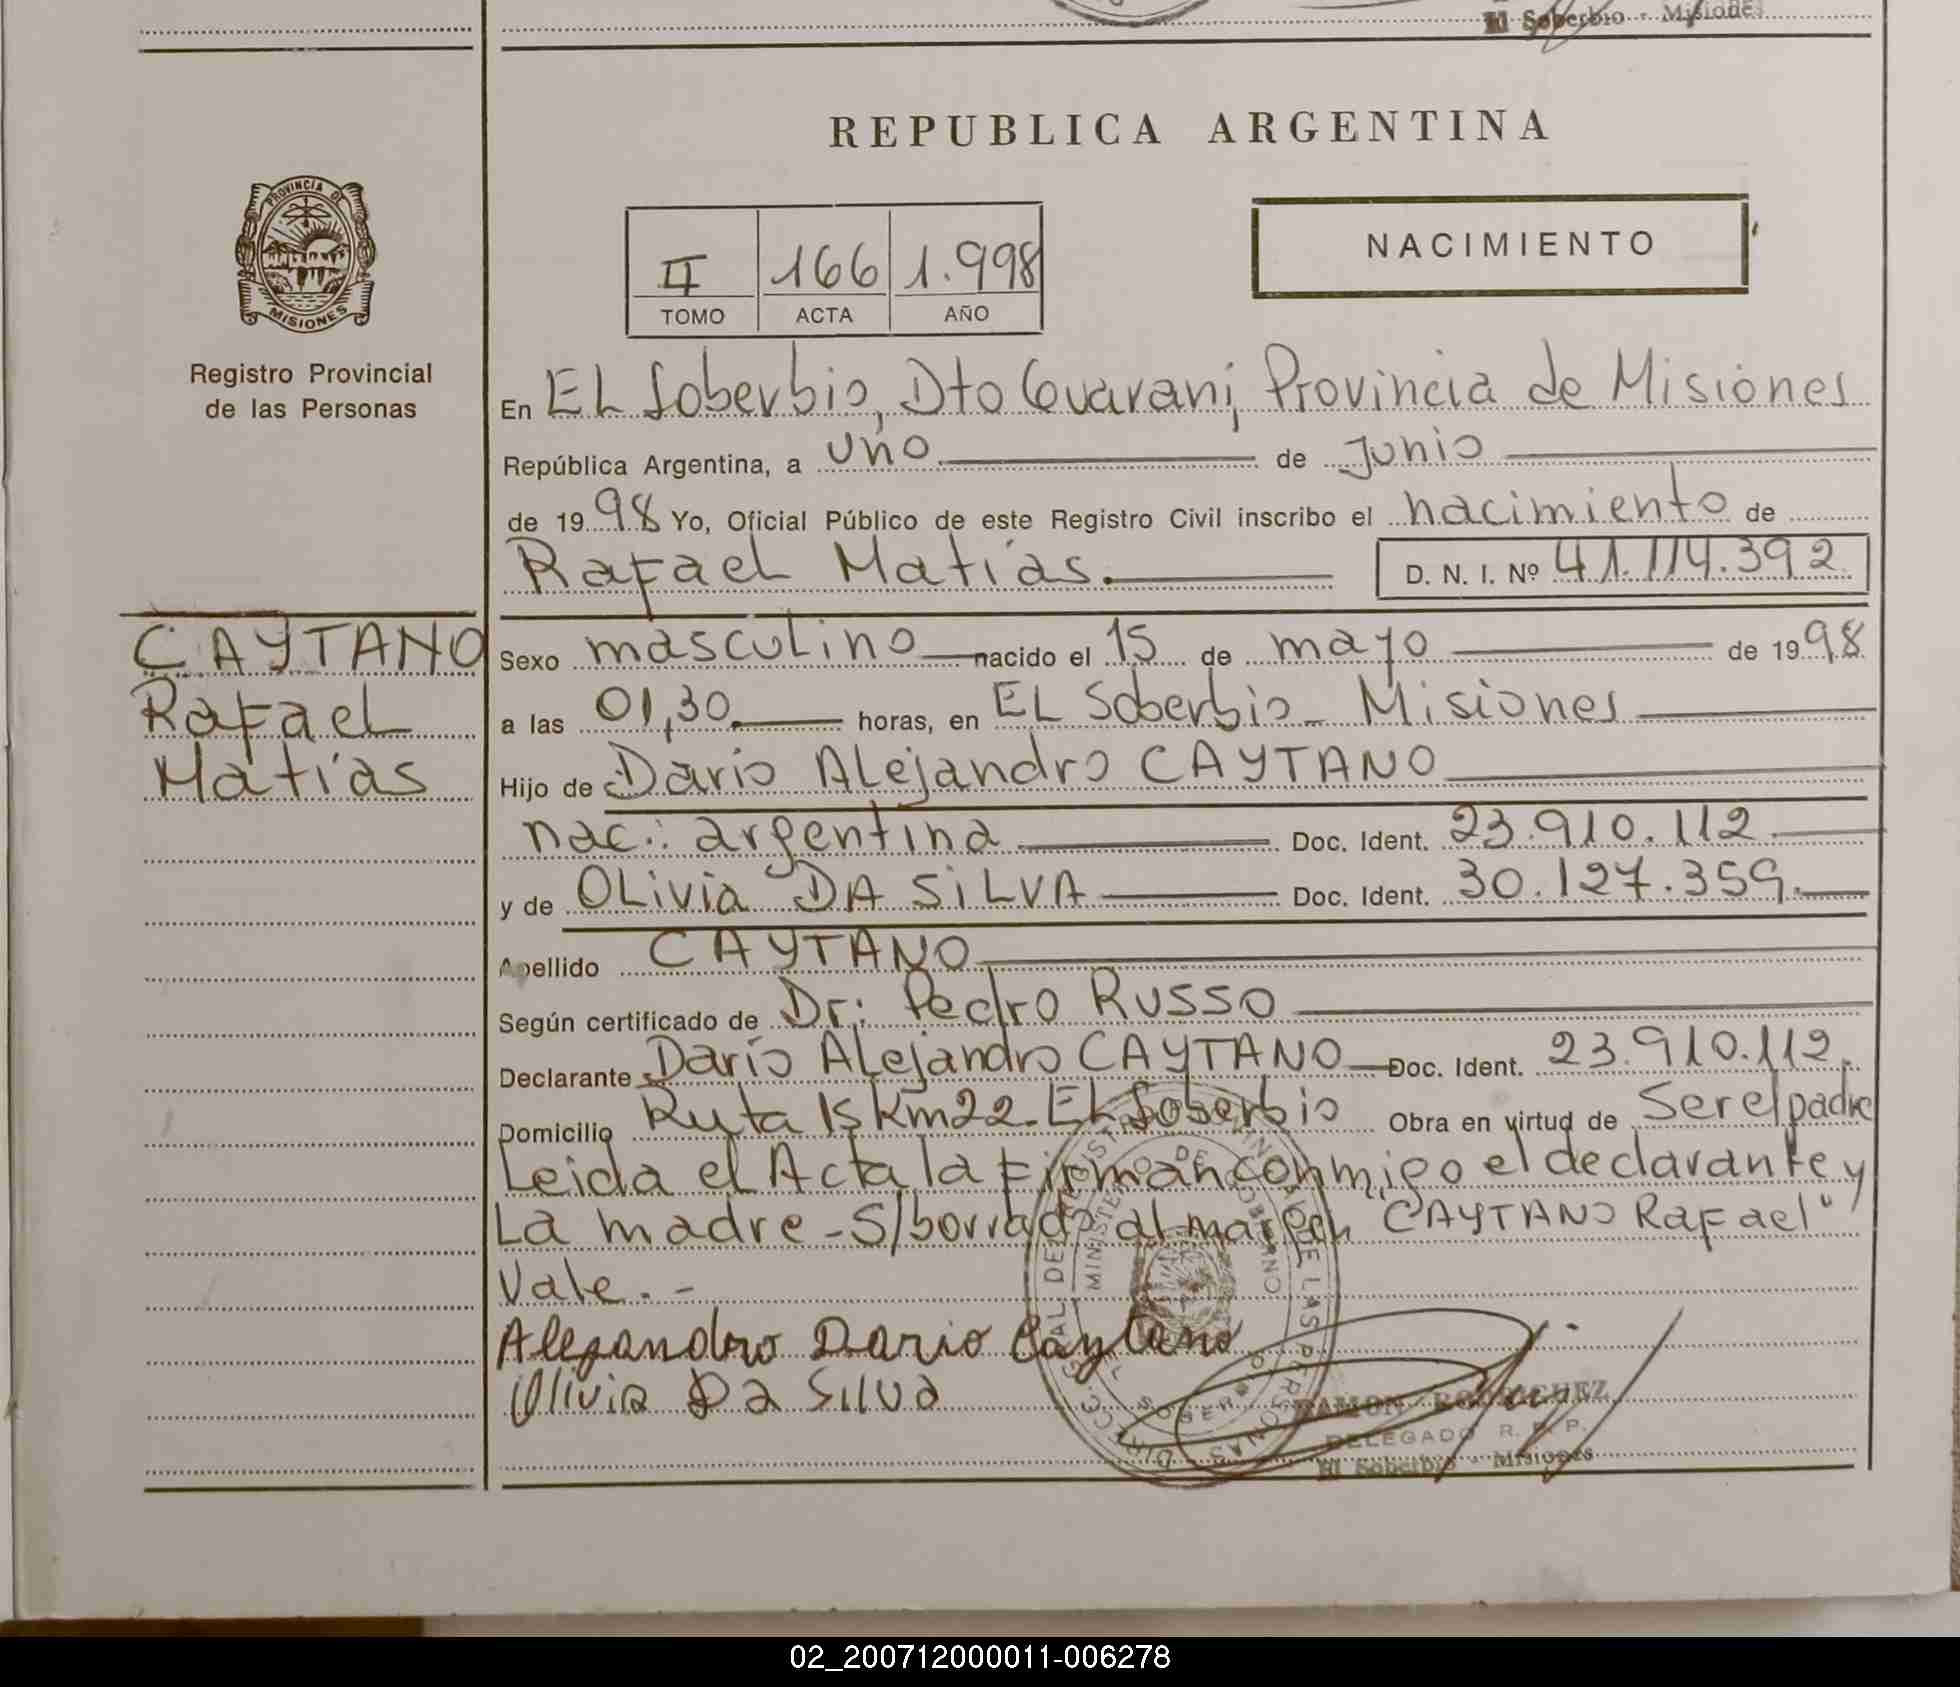 El Soberbio - Misiones
REPUBLICA ARGENTINA
PROVINCIA DE
MISIONES
Registro Provincial
de las Personas
II 166 1.998
TOMO ACTA AÑO
NACIMIENTO
En EL Soberbio, Dto Guarani, Provincia de Misiones
República Argentina, a uno de Junio
de 1998 Yo, Oficial Público de este Registro Civil inscribo el nacimiento de
Rafael Matías. D. N. I. Nº 41.114.392
CAYTANO
Rafael
Matías
Sexo masculino nacido el 15 de mayo de 1998
a las 01,30 horas, en EL Soberbio - Misiones
Hijo de Dario Alejandro CAYTANO
nac.: argentina Doc. Ident. 23.910.112
y de OLivia DA SiLVA Doc. Ident. 30.127.359.
Apellido CAYTANO
Según certificado de Dr: Pedro RUSSO
Declarante Darío Alejandro CAYTANO Doc. Ident. 23.910.112.
Domicilio Ruta 15 Km22. EL Soberbio Obra en virtud de Ser el padre
Leida el Acta la firman conmigo el declarante y
La madre - S/borrado al margen "CAYTANO Rafael"
Vale. -
Alejandro Dario Caytano
Olivia Da Silva
RAMON RODRIGUEZ
DELEGADO R. P. P.
El Soberbio - Misiones
02_200712000011-006278